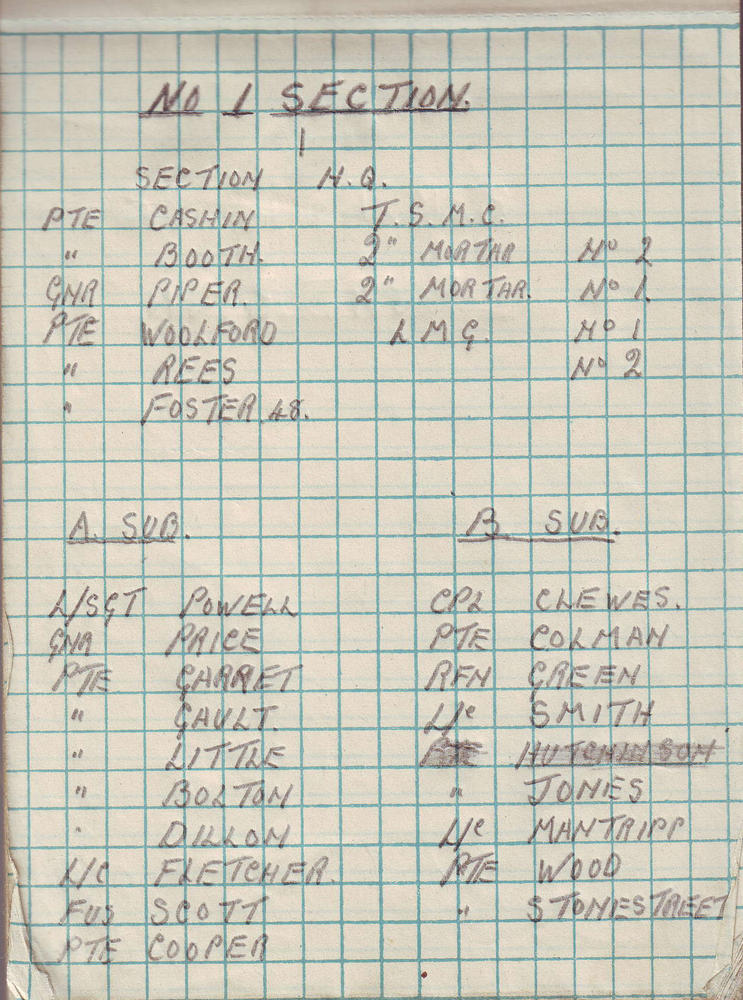 NO 1 SECTION.
SECTION H.Q.
PTE CASHIN T.S.M.C.
" BOOTH. 2" MORTAR No 2
GNR PIPER. 2" MORTAR. No 1.
PTE WOOLFORD L M G. No 1
" REES No 2
" FOSTER 48.
A. SUB.
L/SGT POWELL
GNR PRICE
PTE GARRET
" GAULT.
" LITTLE
" BOLTON
" DILLON
L/C FLETCHER.
FUS SCOTT
PTE COOPER
B SUB.
CPL CLEWES.
PTE COLMAN
RFN GREEN
L/C SMITH
PTE HUTCHINSON
" JONES
L/C MANTRIPP
PTE WOOD
" STONESTREET